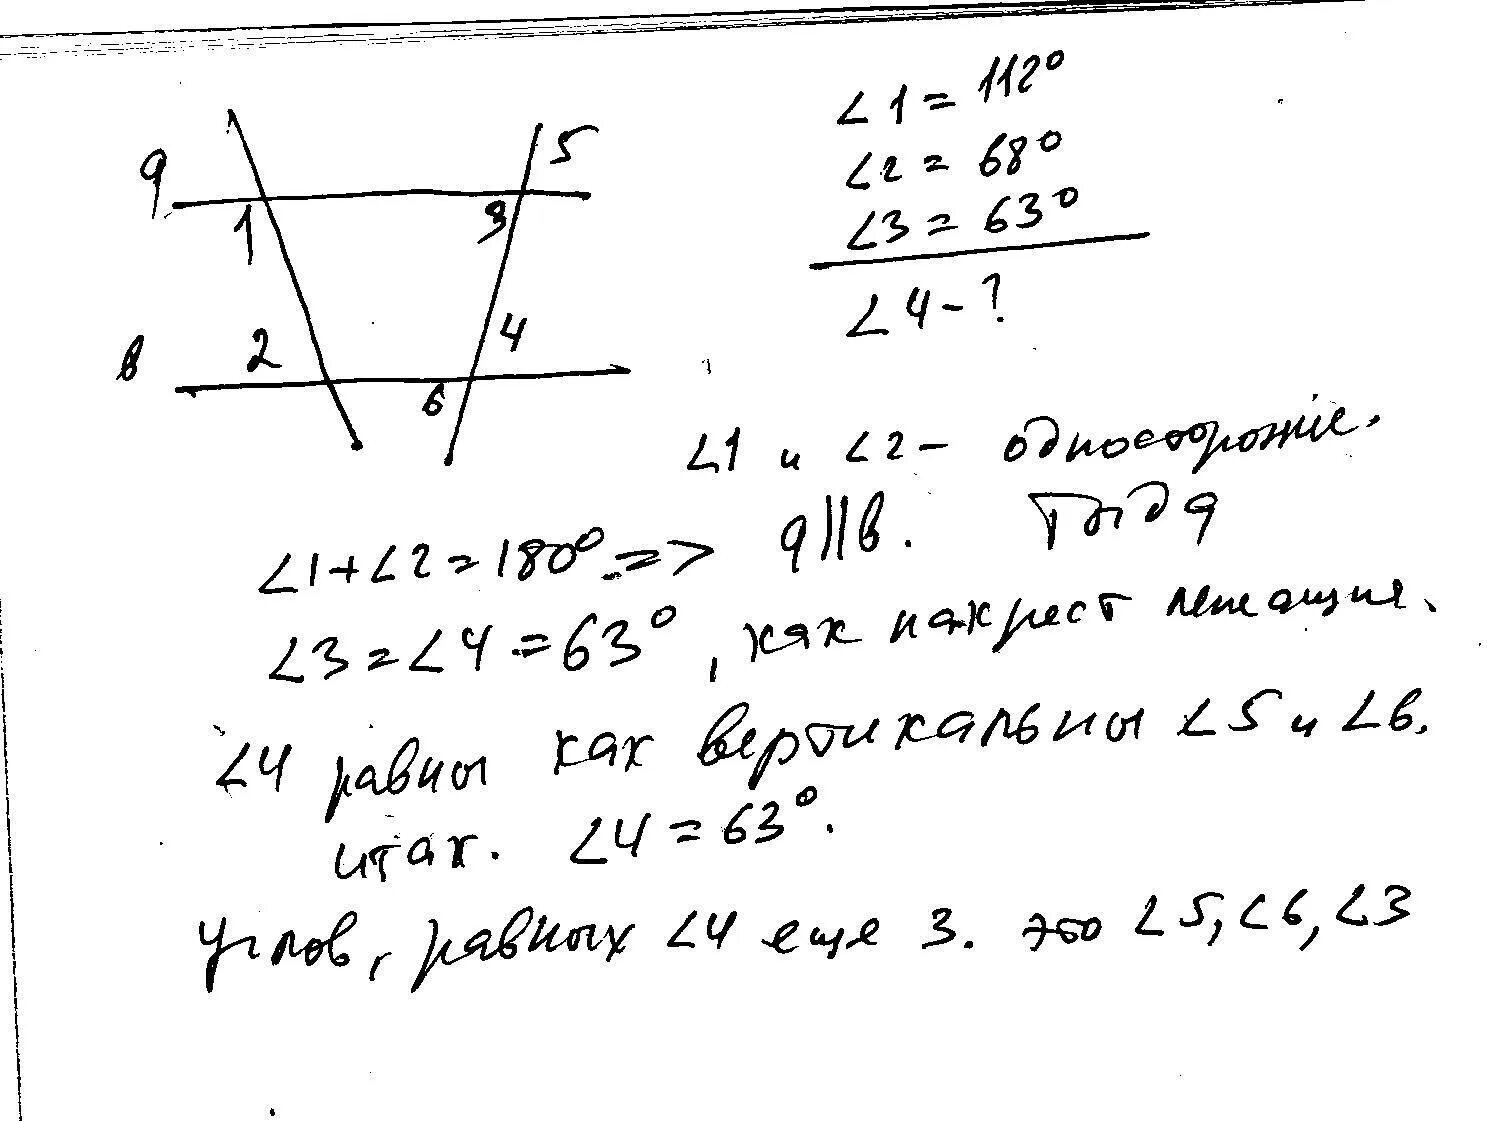 ∠1 = 112°
∠2 = 68°
∠3 = 63°
∠4 - ?
a
5
1
3
в
2
4
6
∠1 и ∠2 - односторонние.
∠1+∠2=180° => a||в. Тогда
∠3=∠4=63°, как накрест лежащие.
∠4 равны как вертикальны ∠5 и ∠6.
итак. ∠4=63°.
Углов, равных ∠4 еще 3. это ∠5, ∠6, ∠3